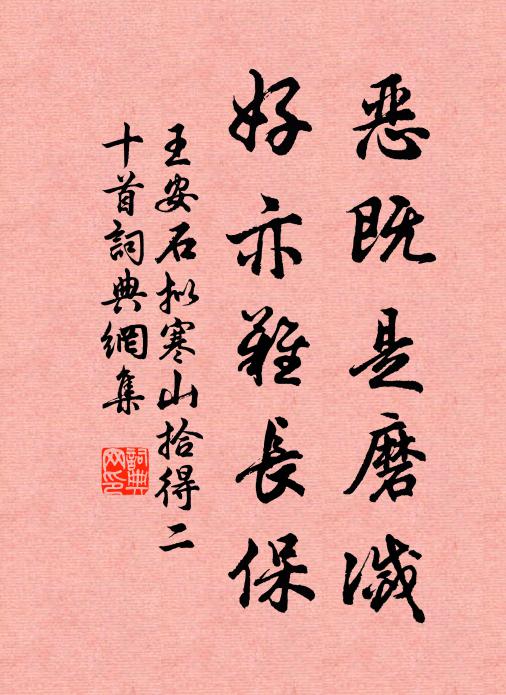 恶既是磨滅
好亦難長保
王安石拟寒山拾得二
十首詞典網集
詞典
网印